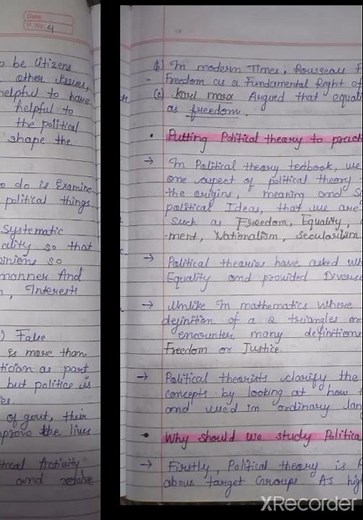 Date
4
o be citizens
other issues,
helpful to have
helpful to
the political
shape the
o do is Examine
political things
systematic
ality so that
pinions so
manner And
, Interests
) False
is more than
tician as part
but politics is
of govt, their
prove the lives
Activity"
and resolve
(b) In modern Times, Rousseau
Freedom as a Fundamental Right of
(c) Karl marx Argued that equal
as freedom.
• Putting Political theory to pract
→ In Political theory textbook, we
one aspect of political theory
the origins, meaning and
political Ideas, that we are
such as Freedom, Equality,
ment, Nationalism, secularism
→ Political theories have asked wh
Equality and provided Diverse
→ Unlike In mathematics where
definition of a triangles or
encounter many definitions
Freedom or Justice.
→ Political theorists clarify the
concepts by looking at how
and used in ordinary lan
• Why should we study Politica
→ Firstly, Political theory is
above target Groups As high
XRecorder